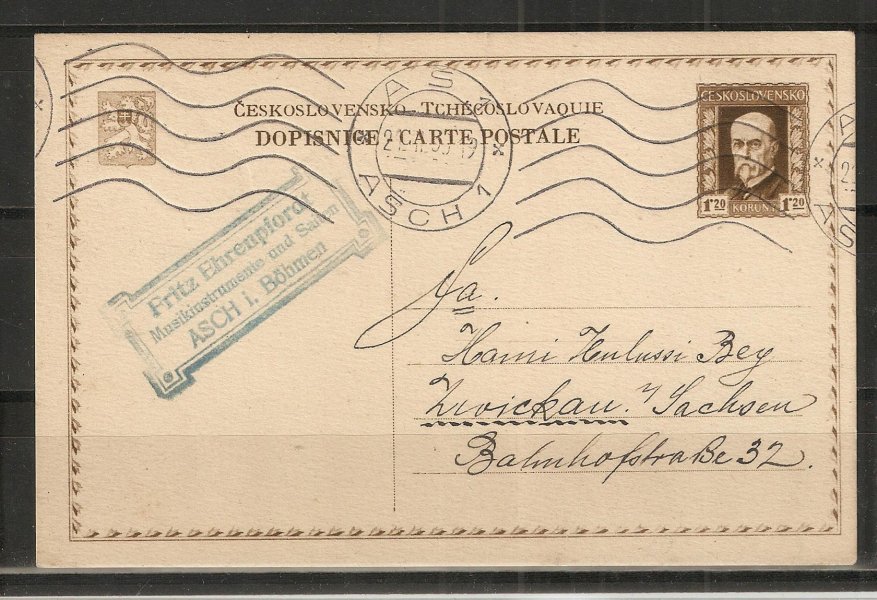 ČESKOSLOVENSKO - TCHÉCOSLOVAQUIE
DOPISNICE - CARTE POSTALE
ČESKOSLOVENSKO
1·20 KORUNY 1·20
AŠ 1
ASCH 1
Fritz Ehrenpfordt
Musikinstrumente und Saiten
ASCH i. Böhmen
Fa.
Hami Hulussi Bey
Zwickau i/ Sachsen
Bahnhofstraße 32.